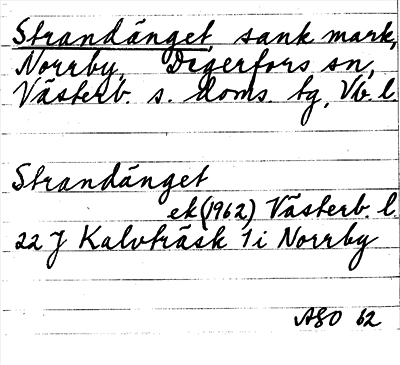 Strandänget, sank mark,
Norrby, Degerfors sn,
Västerb. s. doms. tg, Vb. l.
Strandänget
ek (1962) Västerb. l.
22 J Kalvträsk 1 i Norrby
ASO 62